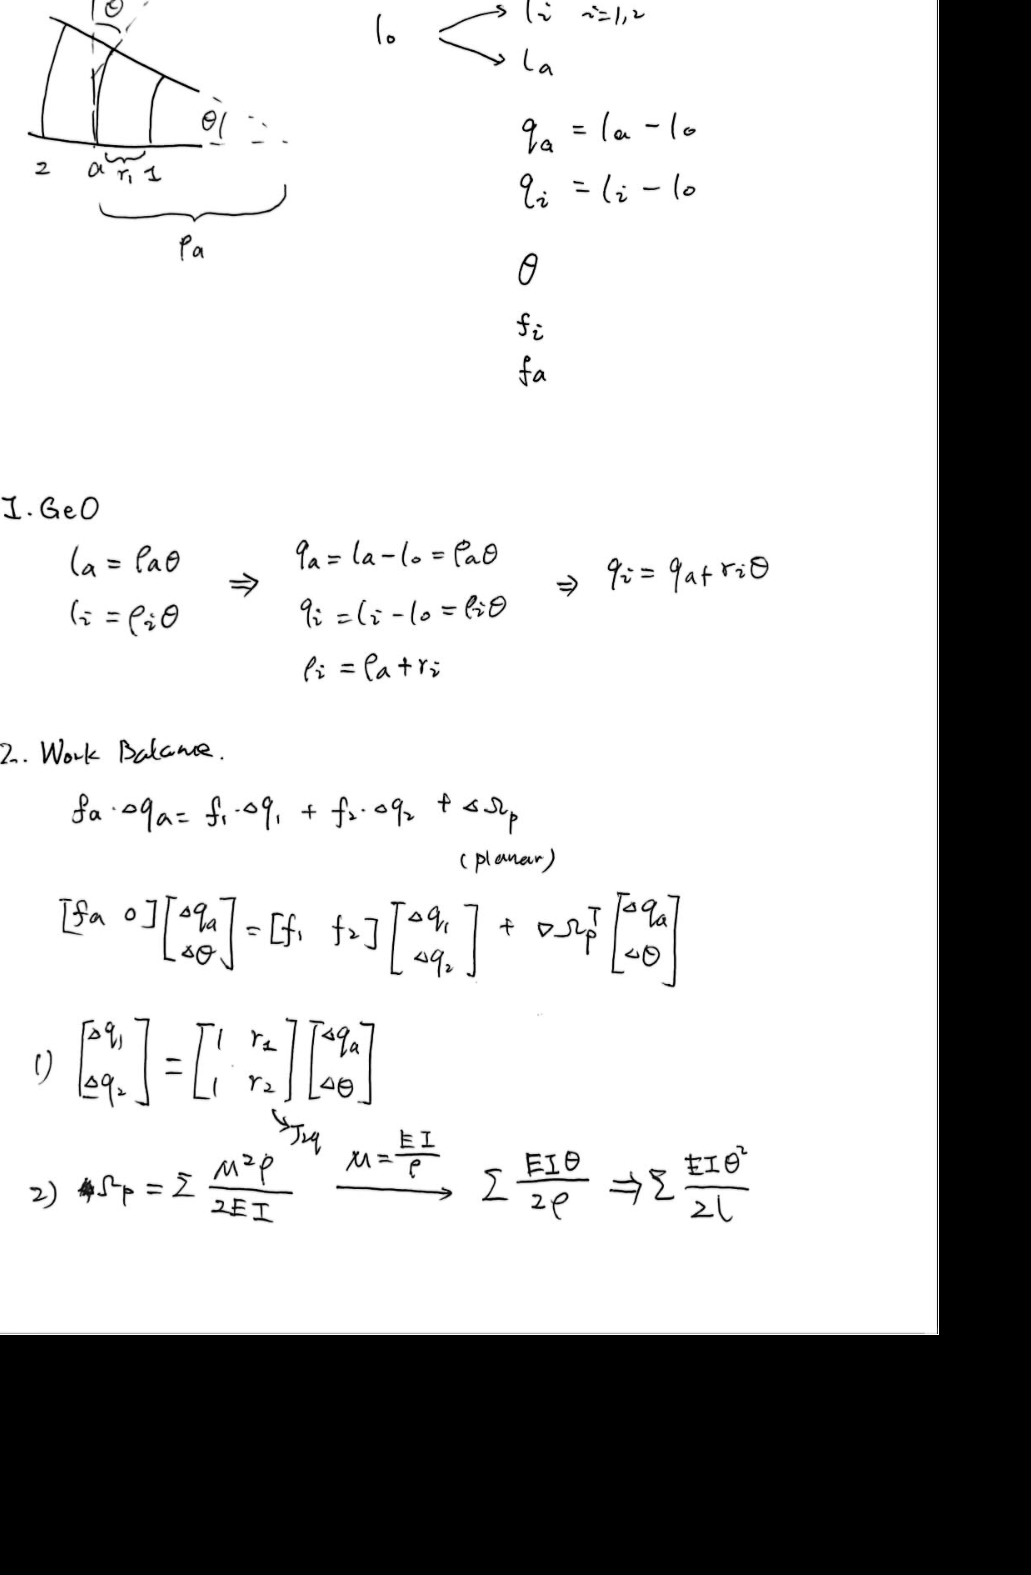 θ
l₀ → lᵢ i=1,2
→ lₐ
θ
2 a r₁ 1
ρₐ
qₐ = lₐ - l₀
qᵢ = lᵢ - l₀
θ
fᵢ
fₐ
1. Geo
lₐ = ρₐθ ⇒ qₐ = lₐ - l₀ = ρₐθ ⇒ qᵢ = qₐ + rᵢθ
lᵢ = ρᵢθ qᵢ = lᵢ - l₀ = ρᵢθ
ρᵢ = ρₐ + rᵢ
2. Work Balance.
fₐ · Δqₐ = f₁ · Δq₁ + f₂ · Δq₂ + ΔΩₚ
(planar)
[fₐ 0] [Δqₐ Δθ] = [f₁ f₂] [Δq₁ Δq₂] + ∇Ωₚᵀ [Δqₐ Δθ]
1) [Δq₁ Δq₂] = [1 r₁ 1 r₂] [Δqₐ Δθ]
2) Ωₚ = Σ M²ρ/2EI M = EI/ρ → Σ EIθ/2ρ ⇒ Σ EIθ²/2l